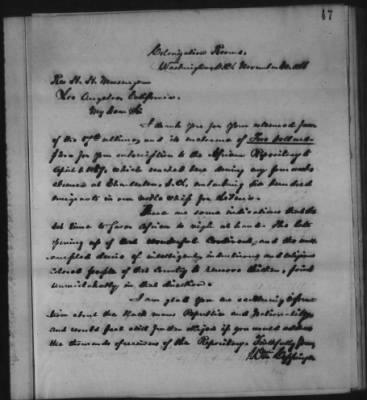 17
Colonization Rooms,
Washington, D.C. November
Rev. H. H.
Los Angeles, California.
My Dear Sir
I thank you for your esteemed favor
of the 27th ultimo, and its enclosure of Two dollars
for your subscription to the African Repository to
April 1, 1867, which reached here during my four weeks
absence at Charleston, S.C., six hundred
emigrants in our noble ship for Liberia.
There are some indications that the
set time to favor Africa is nigh at hand. The late
opening up of that wonderful Continent, and the
desire of intelligent, industrious and religious
colored people of this Country to remove thither, point
unmistakably in that direction.
I am glad you are scattering informa
tion about the Black mans Republic and Nationality,
and would feel still further obliged if you would address
the thousands of receivers of the Repository. Faithfully yours,
Wm Coppinger